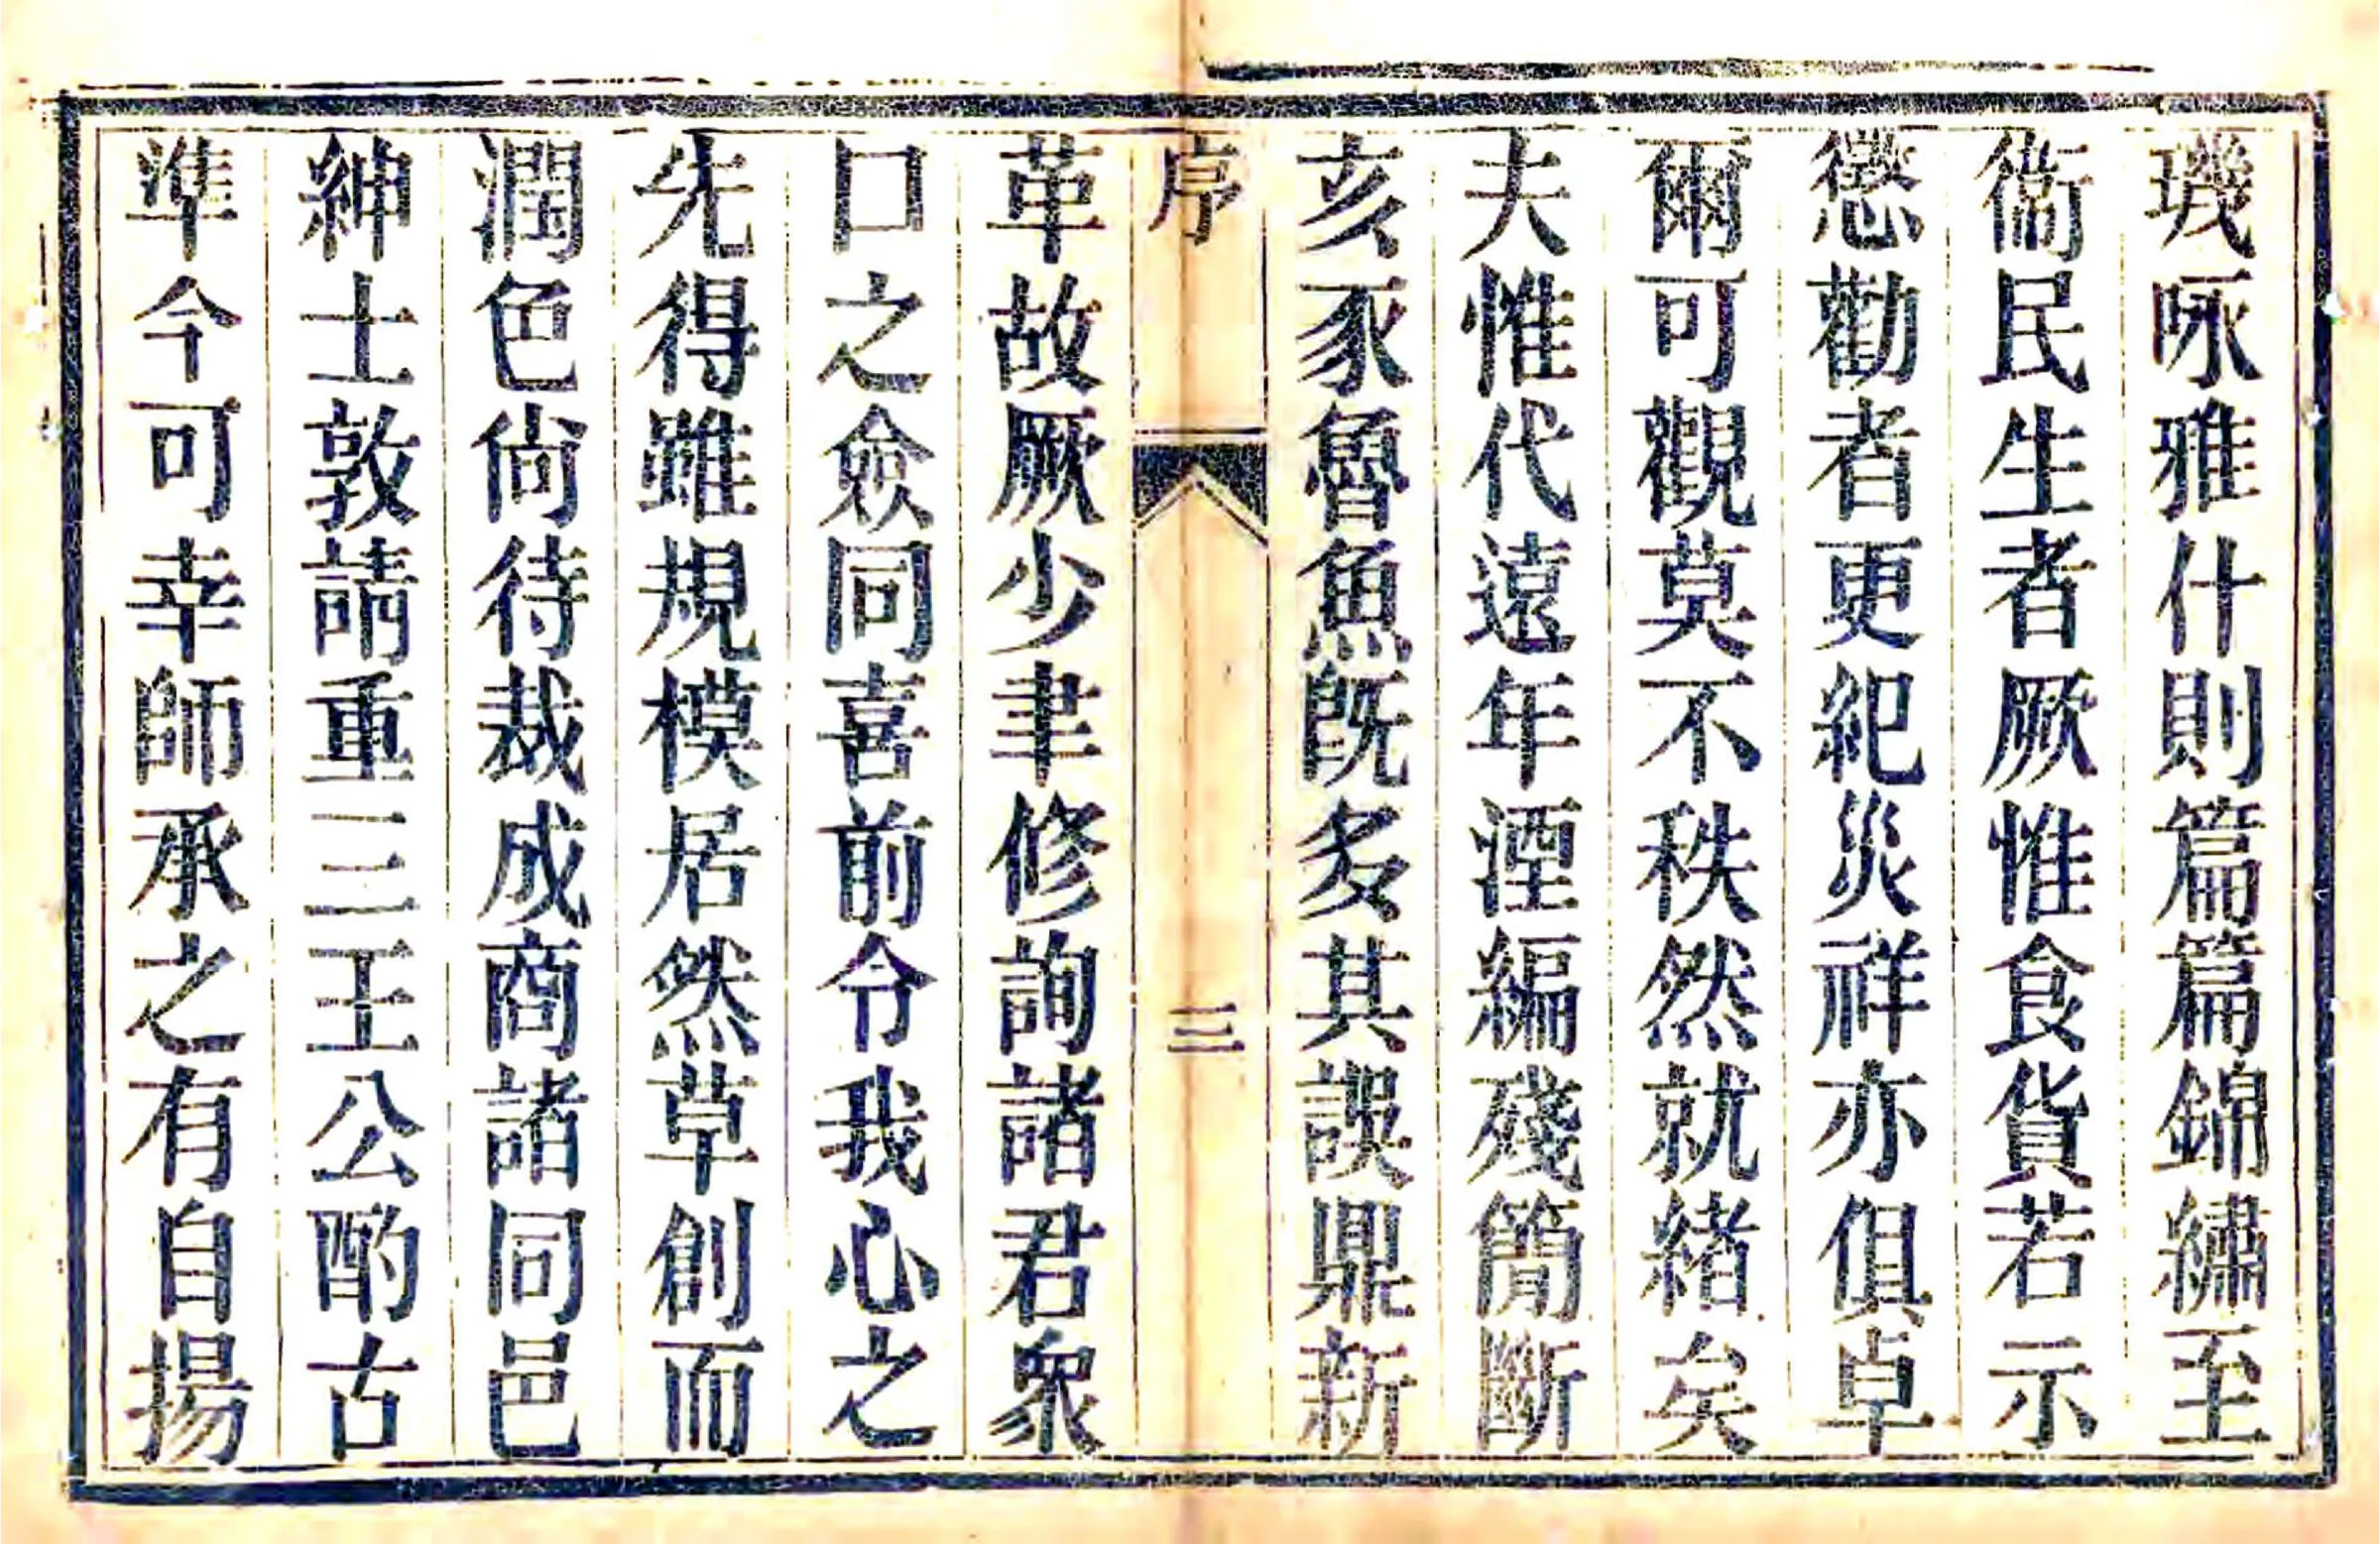 璣啄雅什則篇篇錦繡至
衞民生者厥惟食貨若示
懲勸者更紀災祥亦俱卓
爾可觀莫不秩然就緒矣
夫惟代遠年湮編殘簡斷
亥豕魯魚旣多其誤鼎新
序
三
革故厥少聿修詢諸君衆
口之僉同喜前令我心之
先得雖規模居然草創而
潤色尙待裁成商諸同邑
紳士敦請重三王公酌古
準今可幸師承之有自揚